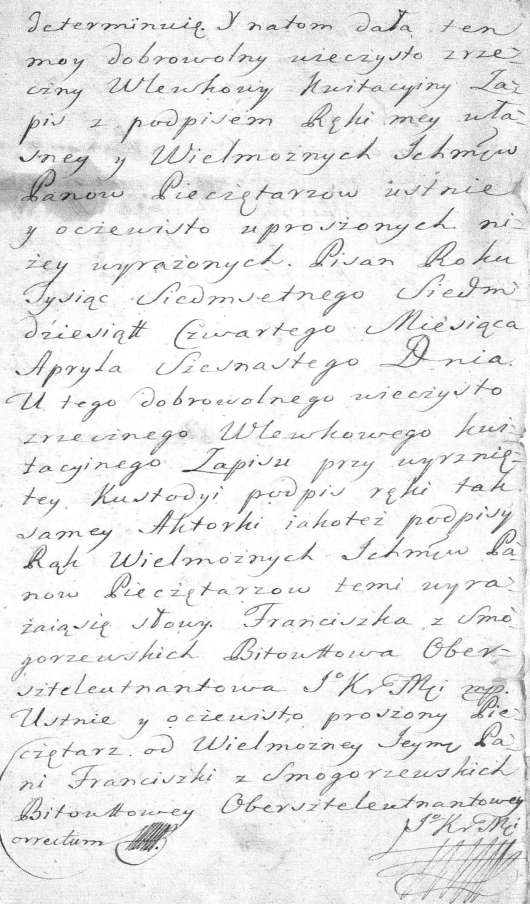 determinuię. Y natom dała ten
moy dobrowolny wieczysto zrze-
czny Wlewkowy Kwitacyiny Za-
pis z podpisem Ręki mey wła-
sney y Wielmożnych Ichmćw
Panow Pieczętarzow ustnie
y oczewisto uproszonych ni-
żey wyrażonych. Pisan Roku
Tysiąc Siedmsetnego Siedm
dziesiątt Czwartego Miesiąca
Apryla Szesnastego Dnia.
U tego dobrowolnego wieczysto
zrzecznego Wlewkowego kwi-
tacyinego Zapisu przy wyrznię-
tey Kustodyi podpis ręki tak
samey Aktorki iakoteż podpisy
Rąk Wielmożnych Ichmćw Pa-
now Pieczętarzow temi wyra-
żaiąsię słowy. Franciszka z Smo-
gorzewskich Bitowttowa Ober-
szteleutnantowa Jº Kr Mći mp.
Ustnie y oczewisto proszony Pie-
czętarz od Wielmożney Jeymć Pa-
ni Franciszki z Smogorzewskich
Bitowttowey Oberszteleutnantowey
Jº Kr Mći
orrectum